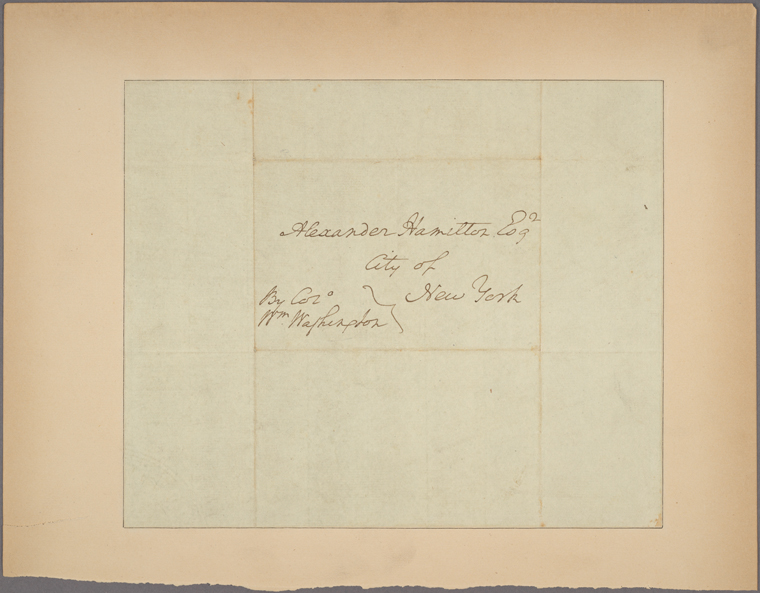 Alexander Hamilton Esqr
City of
New York
By Colo
Wm Washington